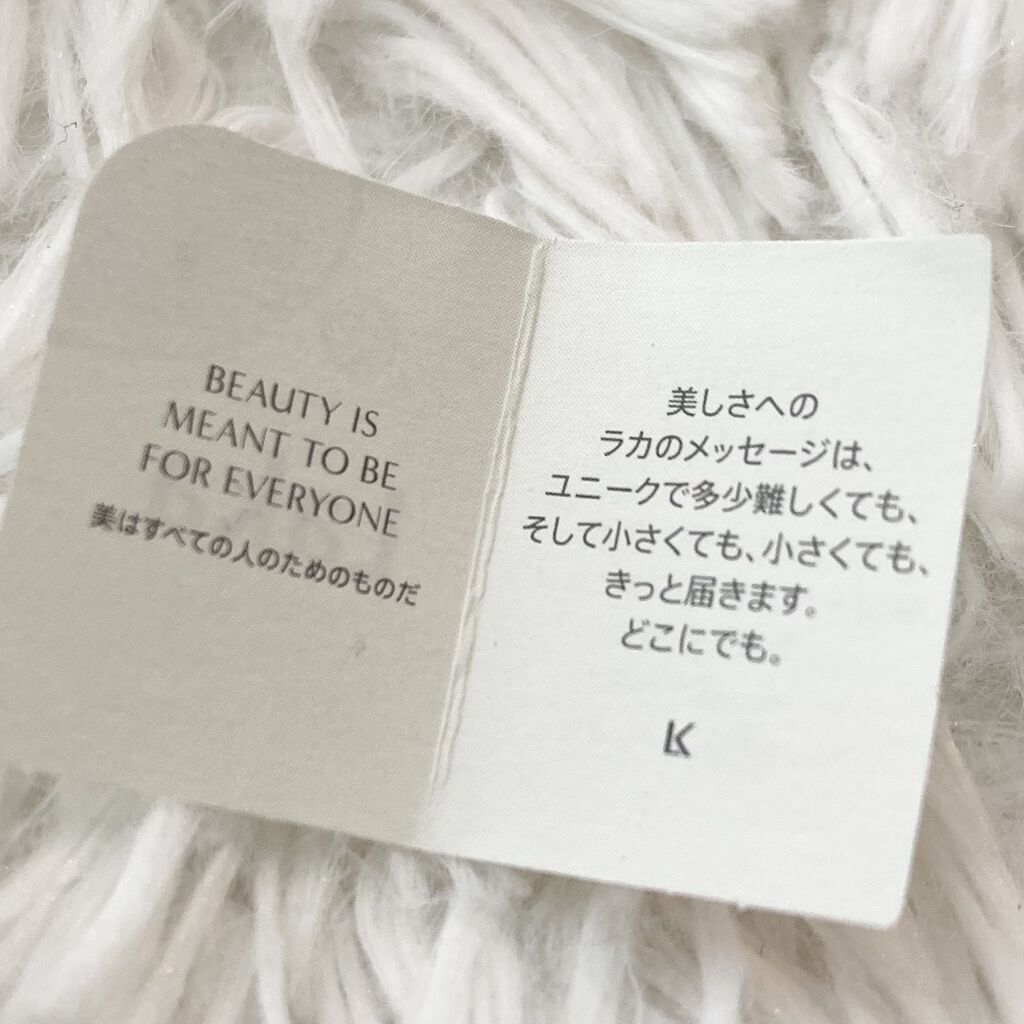 BEAUTY IS
MEANT TO BE
FOR EVERYONE
美はすべての人のためのものだ
美しさへの
ラカのメッセージは、
ユニークで多少難しくても、
そして小さくても、小さくても、
きっと届きます。
どこにでも。
LK